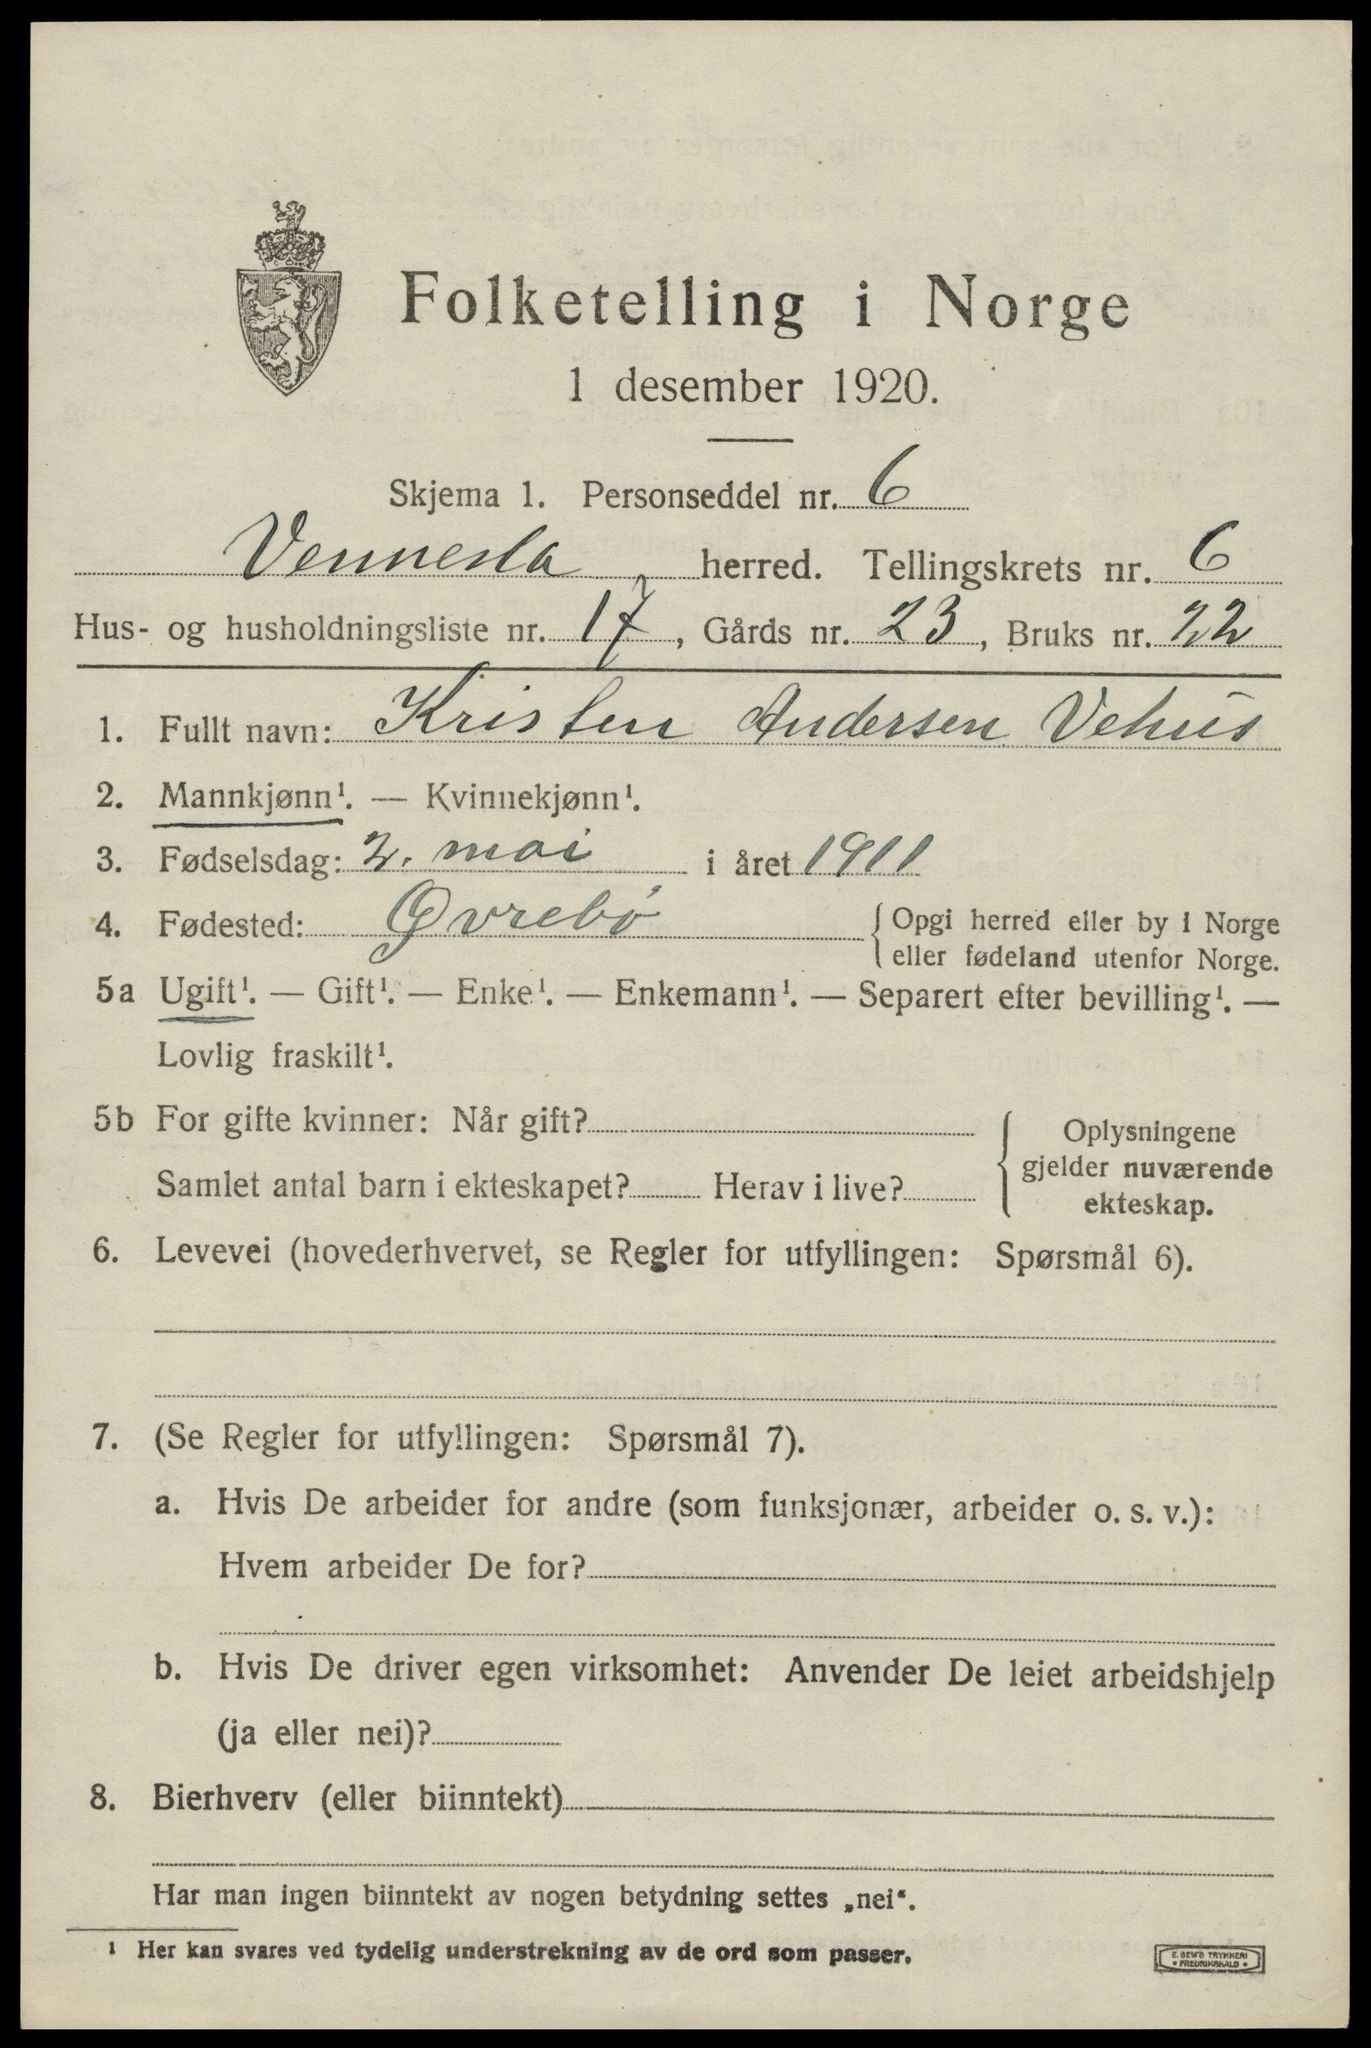 Folketelling i Norge
1 desember 1920.
Skjema 1. Personseddel nr. 6
Vennesla herred. Tellingskrets nr. 6
Hus- og husholdningsliste nr. 17, Gårds nr. 23, Bruks nr. 22
1. Fullt navn: Kristen Andersen Vehus
2. Mannkjønn¹. — Kvinnekjønn¹.
3. Fødselsdag: 2. mai i året 1911
4. Fødested: Øvrebø { Opgi herred eller by i Norge
eller fødeland utenfor Norge.
5a Ugift¹. — Gift¹. — Enke¹. — Enkemann¹. — Separert efter bevilling¹. —
Lovlig fraskilt¹.
5b For gifte kvinner: Når gift?
Samlet antal barn i ekteskapet? Herav i live?
Oplysningene
gjelder nuværende
ekteskap.
6. Levevei (hovederhvervet, se Regler for utfyllingen: Spørsmål 6).
7. (Se Regler for utfyllingen: Spørsmål 7).
a. Hvis De arbeider for andre (som funksjonær, arbeider o. s. v.):
Hvem arbeider De for?
b. Hvis De driver egen virksomhet: Anvender De leiet arbeidshjelp
(ja eller nei)?
8. Bierhverv (eller biinntekt)
Har man ingen biinntekt av nogen betydning settes „nei“.
¹ Her kan svares ved tydelig understrekning av de ord som passer.
E. SEM'S TRYKKERI
• FREDRIKSHALD •